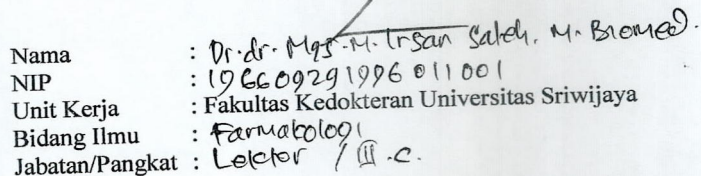 Nama : Dr.dr. Mgs.M. Irsan Saleh, M. Biomed.
NIP : 196609291996011001
Unit Kerja : Fakultas Kedokteran Universitas Sriwijaya
Bidang Ilmu : Farmakologi
Jabatan/Pangkat : Lektor / III.c.